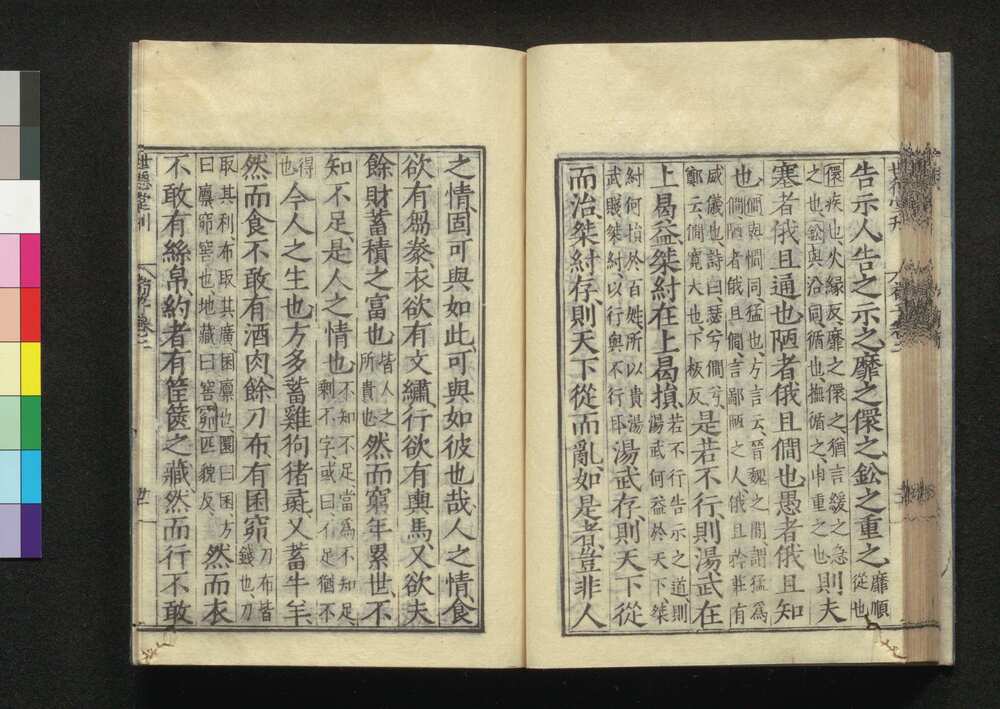 告示人告之示之靡之儇之鈆之重之靡順
從也
儇疾也火緣反靡之儇之猶言緩之急
之也鈆與沿同循也撫循之申重之也則夫
塞者俄且通也陋者俄且僩也愚者俄且知
也僩與憪同猛也方言云晉魏之間謂猛爲
僩陋者俄且僩言鄙陋之人俄且矜莊有
威儀也詩曰瑟兮僩兮
鄭云僩寬大也下板反是若不行則湯武在
上曷益桀紂在上曷損若不行告示之道則
湯武何益於天下桀
紂何損於百姓所以貴湯
武賤桀紂以行與不行耳湯武存則天下從
而治桀紂存則天下從而亂如是者豈非人
之情固可與如此可與如彼也哉人之情食
欲有芻豢衣欲有文繡行欲有輿馬又欲夫
餘財蓄積之富也皆人之
所貴也然而窮年累世不
知不足是人之情也不知不足當爲不知足
剩不字或曰不足猶不
得
也今人之生也方多蓄雞狗猪彘又蓄牛羊
然而食不敢有酒肉餘刀布有囷窌刀布皆
錢也刀
取其利布取其廣囷廩也圜曰囷方
曰廩窌窖也地藏曰窖窌匹貌反然而衣
不敢有絲帛約者有筐篋之藏然而行不敢
世德堂刊